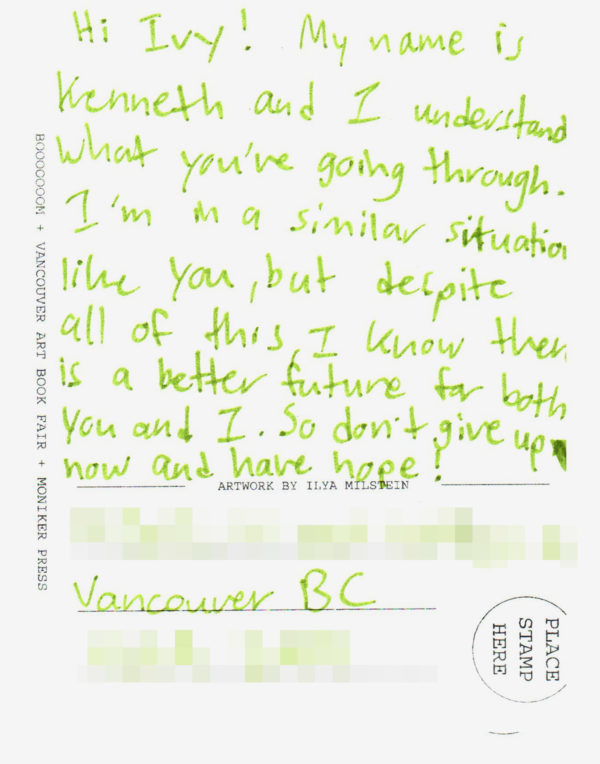 Hi Ivy! My name is
Kenneth and I understand
what you've going through.
I'm in a similar situation
like you, but despite
all of this, I know ther
is a better future for both
you and I. So don't give up
now and have hope!
ARTWORK BY ILYA MILSTEIN
Vancouver BC
PLACE
STAMP
HERE
BOOOOOOOM + VANCOUVER ART BOOK FAIR + MONIKER PRESS